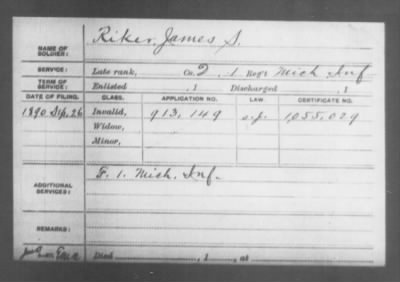 NAME OF SOLDIER: Riker, James S.
SERVICE: Late rank, Co. 2, 1 Reg't Mich Inf
TERM OF SERVICE: Enlisted , 1 Discharged , 1
DATE OF FILING. CLASS. APPLICATION NO. LAW. CERTIFICATE NO.
1890 Sep. 26 Invalid, 913,149 1055,029
Widow,
Minor,
ADDITIONAL SERVICES: F. 1. Mich. Inf.
REMARKS:
Died , 1 , at